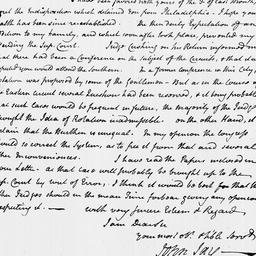 been favored with yours of the 3d of last Month,
the Indisposition which detained you from Philadelphia. I hope your
health has been since re-established. In the then daily Expectation of an
addition to my family, and which soon after took place, prevented my
attending the Sup. Court. Judge Cushing on his Return informed me
that there had been a Conference on the Subject of the Circuits, & that it
would attend the Southern. In a former conference in this City,
Rotation was proposed by some of the Gentlemen. But as in the course of
Eastern circuit several Questions had been reserved, & it being probable
that such cases would be frequent in future, the majority of the Judges
thought the Idea of Rotation inadmissible. on the other Hand, it
is plain that the Burthen is unequal. In my opinion the
would be to correct the System, as to free it from that and several
other Inconveniences. I have read the Papers inclosed in
your Letter. as that case will probably be brought up to the
Sup. Court by writ of Error, I think it would be best for that the
the Judges should in the mean Time forbear giving any opinion
respecting it. — with very sincere Esteem & Regard,
I am Dear Sir
your most obt. & hble Servt.
John Jay